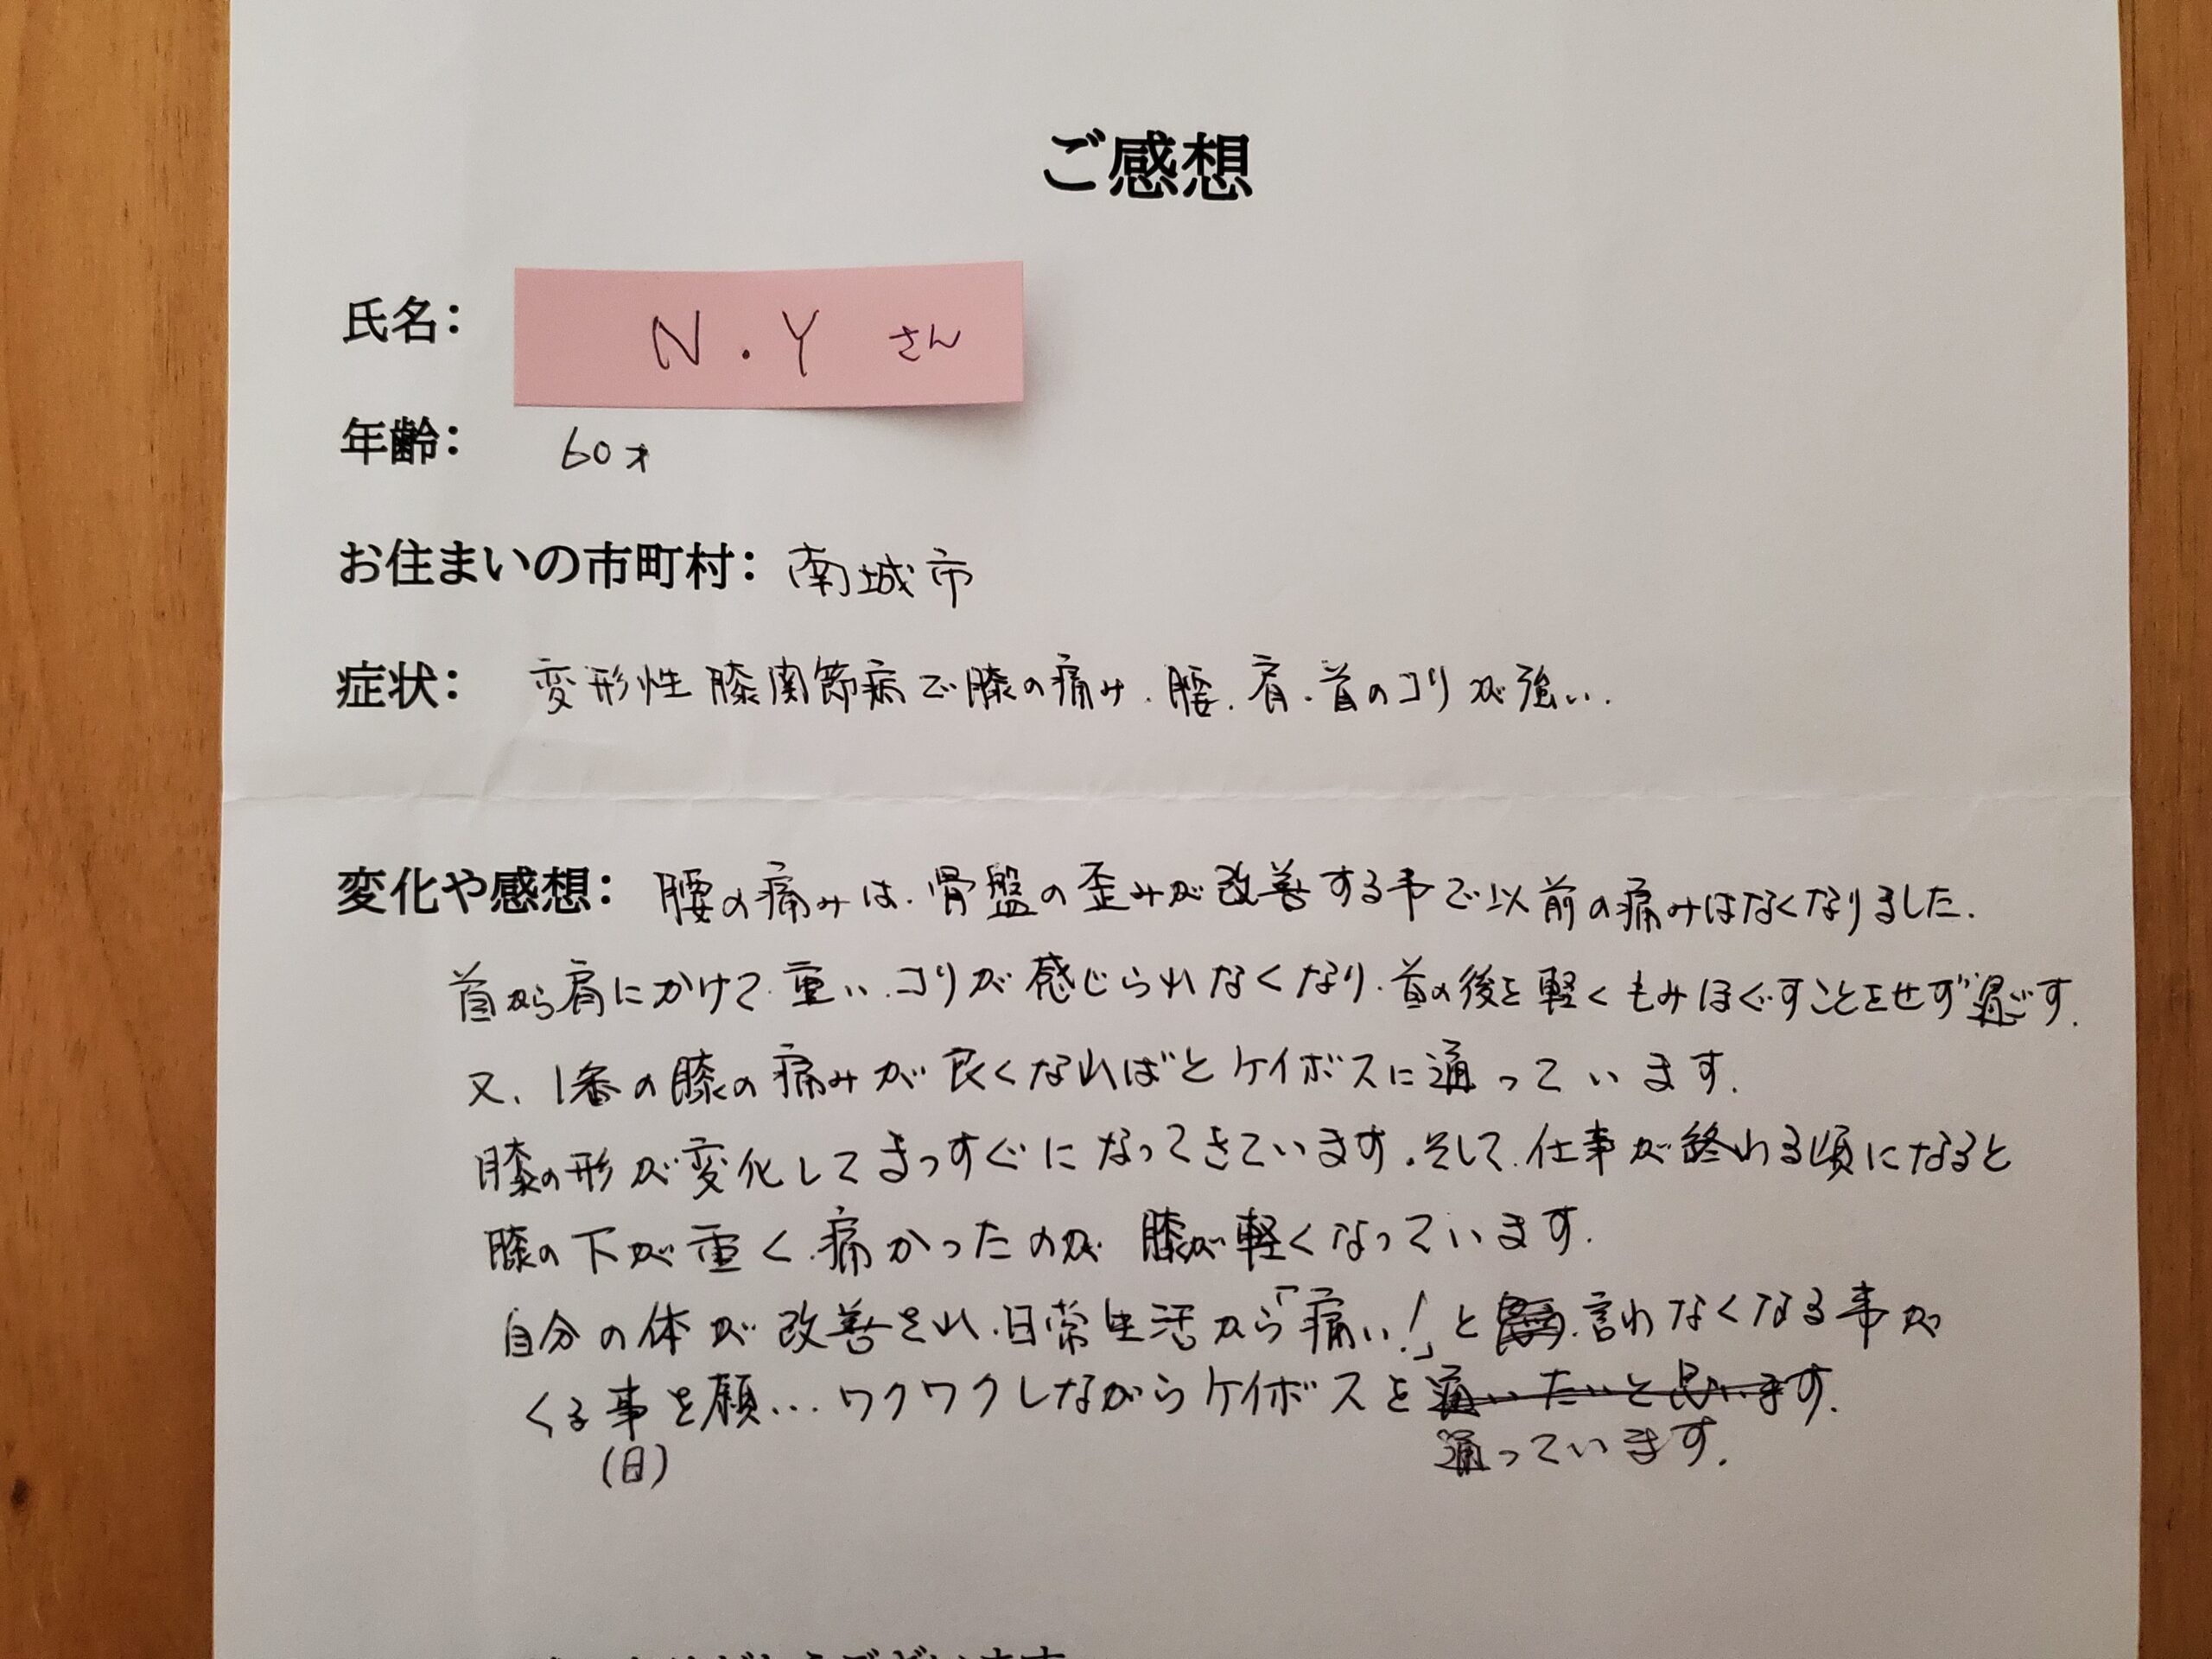 ご感想
氏名： N.Y さん
年齢： 60才
お住まいの市町村： 南城市
症状： 変形性膝関節病で膝の痛み.腰.肩.首のコリが強い.
変化や感想： 腰の痛みは.骨盤の歪みが改善する事で以前の痛みはなくなりました.
首から肩にかけて.重い.コリが感じられなくなり.首の後を軽くもみほぐすことをせず過ごす.
又、1番の膝の痛みが良くなればとケイボスに通っています.
膝の形が変化してまっすぐになってきています.そして.仕事が終わる頃になると
膝の下が重く.痛かったのが膝が軽くなっています.
自分の体が改善され.日常生活から「痛い!」と.言わなくなる事が
くる事を願...ワクワクしながらケイボスを通いたいと思います.
(日) 通っています.